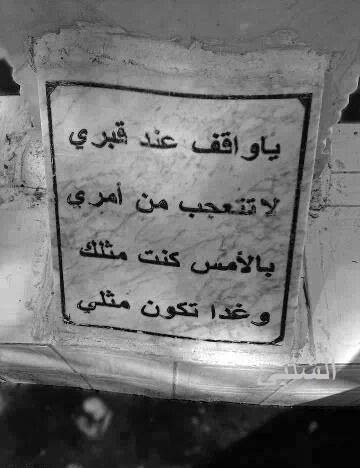 ياواقف عند قبري
لا تتعجب من أمري
بالأمس كنت مثلك
وغدا تكون مثلي